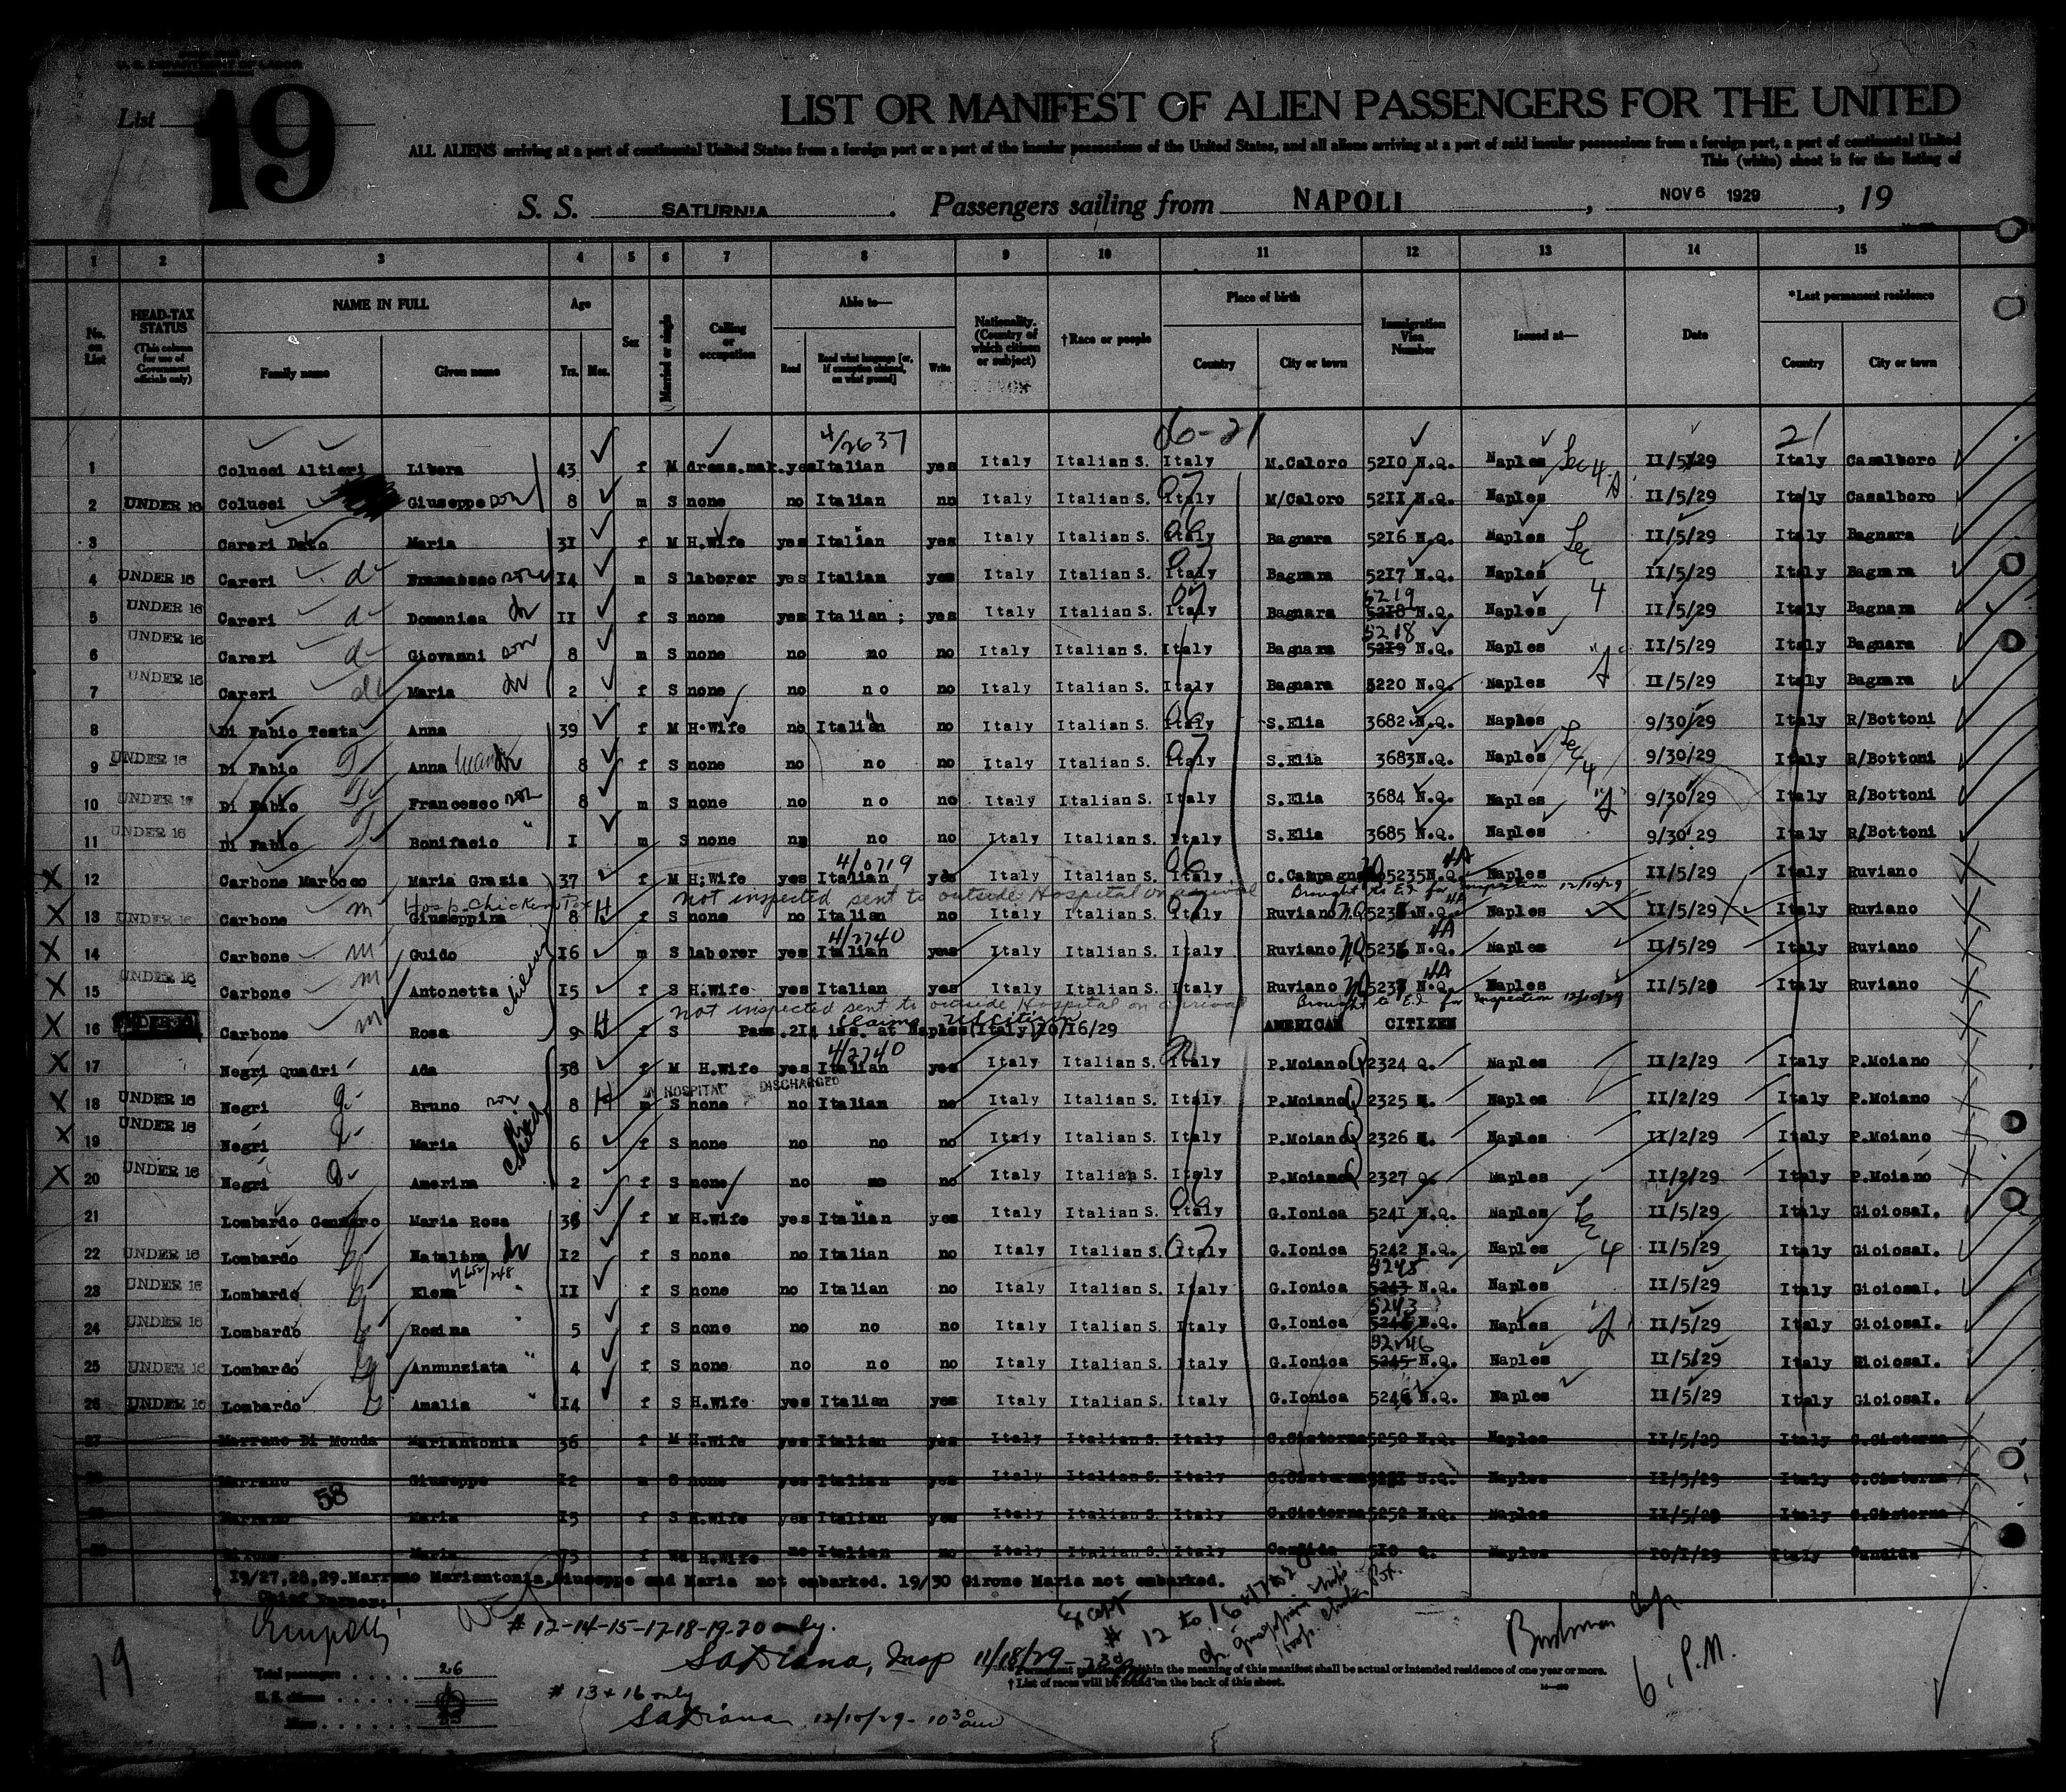 U. S. DEPARTMENT OF LABOR
List 19
LIST OR MANIFEST OF ALIEN PASSENGERS FOR THE UNITED
ALL ALIENS arriving at a port of continental United States from a foreign port or a port of the insular possessions of the United States, and all aliens arriving at a port of said insular possessions from a foreign port, a port of continental United
This (white) sheet is for the listing of
S. S. SATURNIA . Passengers sailing from NAPOLI , NOV 6 1929 , 19
1 2 3 4 5 6 7 8 9 10 11 12 13 14 15
No. on List HEAD-TAX STATUS (This column for use of Government officials only) NAME IN FULL Family name Given name Age Yrs. Mos. Sex Married or single Calling or occupation Able to— Read Read what language [or, if exemption claimed, on what ground] Write Nationality. (Country of which citizen or subject) †Race or people Place of birth Country City or town Immigration Visa Number Issued at— Date *Last permanent residence Country City or town
4/2637 06-21 21
1 Colucci Altieri Libera 43 f M dress.mak. yes Italian yes Italy Italian S. Italy M.Caloro 5210 N.Q. Naples Sec 4 A II/5/29 Italy Casalboro
2 UNDER 16 Colucci Giuseppe son 8 m S none no Italian no Italy Italian S. Italy M/Caloro 52II N.Q. Naples II/5/29 Italy Casalboro
3 Careri Dato Maria 3I f M H.Wife yes Italian yes Italy Italian S. Italy Bagnara 52I6 N.Q. Naples Sec II/5/29 Italy Bagnara
4 UNDER 16 Careri d son I4 m S laborer yes Italian yes Italy Italian S. Italy Bagnara 52I7 N.Q. Naples 4 II/5/29 Italy Bagnara
5 UNDER 16 Careri d Domenica dr II f S none yes Italian ; yes Italy Italian S. Italy Bagnara 5219 52I8 N.Q. Naples II/5/29 Italy Bagnara
6 UNDER 16 Careri d Giovanni son 8 m S none no no no Italy Italian S. Italy Bagnara 5218 52I9 N.Q. Naples "A" II/5/29 Italy Bagnara
7 UNDER 16 Careri d Maria dr 2 f S none no no no Italy Italian S. Italy Bagnara 5220 N.Q. Naples II/5/29 Italy Bagnara
8 Di Fabio Testa Anna 39 f M H.Wife no Italian no Italy Italian S. Italy S.Elia 3682 N.Q. Naples 9/30/29 Italy R/Bottoni
9 UNDER 16 Di Fabio T Anna dr 8 f S none no no no Italy Italian S. Italy S.Elia 3683N.Q. Naples Sec 4 9/30/29 Italy R/Bottoni
10 UNDER 16 Di Fabio T Francesco son 8 m S none no no no Italy Italian S. Italy S.Elia 3684 N.Q. Naples "A" 9/30/29 Italy R/Bottoni
11 UNDER 16 Di Fabio T Bonifacio " I m S none no no no Italy Italian S. Italy S.Elia 3685 N.Q. Naples 9/30/29 Italy R/Bottoni
4/0719
X 12 Carbone Marocco Maria Grazia 37 f M H;Wife yes Italian yes Italy Italian S. Italy C.Campagna 5235N.Q. Naples II/5/29 Italy Ruviano
Hosp. Chicken Pox not inspected sent to outside Hospital on arrival Brought to E.I. for inspection 12/10/29
X 13 UNDER 16 Carbone m Giuseppina 8 f S none no Italian no Italy Italian S. Italy Ruviano N.Q. Naples II/5/29 Italy Ruviano
4/2740
X 14 Carbone m Guido I6 m S laborer yes Italian yes Italy Italian S. Italy Ruviano N.Q. Naples II/5/29 Italy Ruviano
X 15 UNDER 16 Carbone m Antonetta I5 f S H.Wife yes Italian yes Italy Italian S. Italy Ruviano N.Q. Naples II/5/29 Italy Ruviano
not inspected sent to outside Hospital on arrival Brought to E.I. for Inspection 12/10/29
claims US citizen
X 16 UNDER 16 Carbone m Rosa 9 f S Pass.2I4 iss. at Naples(Italy)I0/I6/29 AMERICAN CITIZEN
4/2740
X 17 Negri Quadri Ada 38 f M H.Wife yes Italian yes Italy Italian S. Italy P.Moiano 2324 Q. Naples II/2/29 Italy P.Moiano
IN HOSPITAL DISCHARGED
X 18 UNDER 16 Negri Q Bruno son 8 m S none no Italian no Italy Italian S. Italy P.Moiano 2325 Naples II/2/29 Italy P.Moiano
X 19 UNDER 16 Negri Q Maria 6 f S none no no no Italy Italian S. Italy P.Moiano 2326 Naples II/2/29 Italy P.Moiano
X 20 UNDER 16 Negri Q Amerina 2 f S none no no no Italy Italian S. Italy P.Moiano 2327 Q. Naples II/2/29 Italy P.Moiano
21 Lombardo Gennaro Maria Rosa f M H.Wife yes Italian yes Italy Italian S. Italy G.Ionica 524I N.Q. Naples Sec II/5/29 Italy GioiosaI.
22 UNDER 16 Lombardo G Natalina dr I2 f S none no Italian no Italy Italian S. Italy G.Ionica 5242 N.Q. Naples 4 II/5/29 Italy GioiosaI.
23 UNDER 16 Lombardo G Elena " II f S none no Italian no Italy Italian S. Italy G.Ionica 5245 5243 N.Q. Naples II/5/29 Italy GioiosaI.
24 UNDER 16 Lombardo G Rosina " 5 f S none no no no Italy Italian S. Italy G.Ionica 5243 N.Q. Naples "A" II/5/29 Italy GioiosaI.
25 UNDER 16 Lombardo G Annunziata " 4 f S none no no no Italy Italian S. Italy G.Ionica 5245 N.Q. Naples II/5/29 Italy GioiosaI.
26 UNDER 16 Lombardo G Amalia " I4 f S H.Wife yes Italian yes Italy Italian S. Italy G.Ionica N.Q. Naples II/5/29 Italy GioiosaI.
27 Marrano Di Nonda Mariantonia 36 f M H.Wife yes Italian yes Italy Italian S. Italy C.Cisterna 5250 N.Q. Naples II/5/29 Italy C.Cisterna
Marrano Giuseppe I2 m S none yes Italian yes Italy Italian S. Italy C.Cisterna 525I N.Q. Naples II/5/29 Italy C.Cisterna
58
Marrano Maria I5 f S H.Wife yes Italian yes Italy Italian S. Italy C.Cisterna 5252 N.Q. Naples II/5/29 Italy C.Cisterna
Girone Maria 75 f Wd H.Wife no Italian no Italy Italian S. Italy Candida 5I0 Q. Naples I0/I/29 Italy Candida
I9/27,28,29.Marrano Mariantonia,Giuseppe and Maria not embarked. 19/30 Girone Maria not embarked.
# 12-14-15-17-18-19-20 only.
Except # 12 to 16 & 17 to 20
Hosp. Chicken Pox.
SaDiana, Insp 11/18/29
6. P.M.
19
Total passengers . . . . 26
U. S. citizens . . . . .
Aliens . . . . . . 25
* Permanent residence within the meaning of this manifest shall be actual or intended residence of one year or more.
† List of races will be found on the back of this sheet.
# 13 + 16 only
SaDiana 12/10/29 - 10 30 am